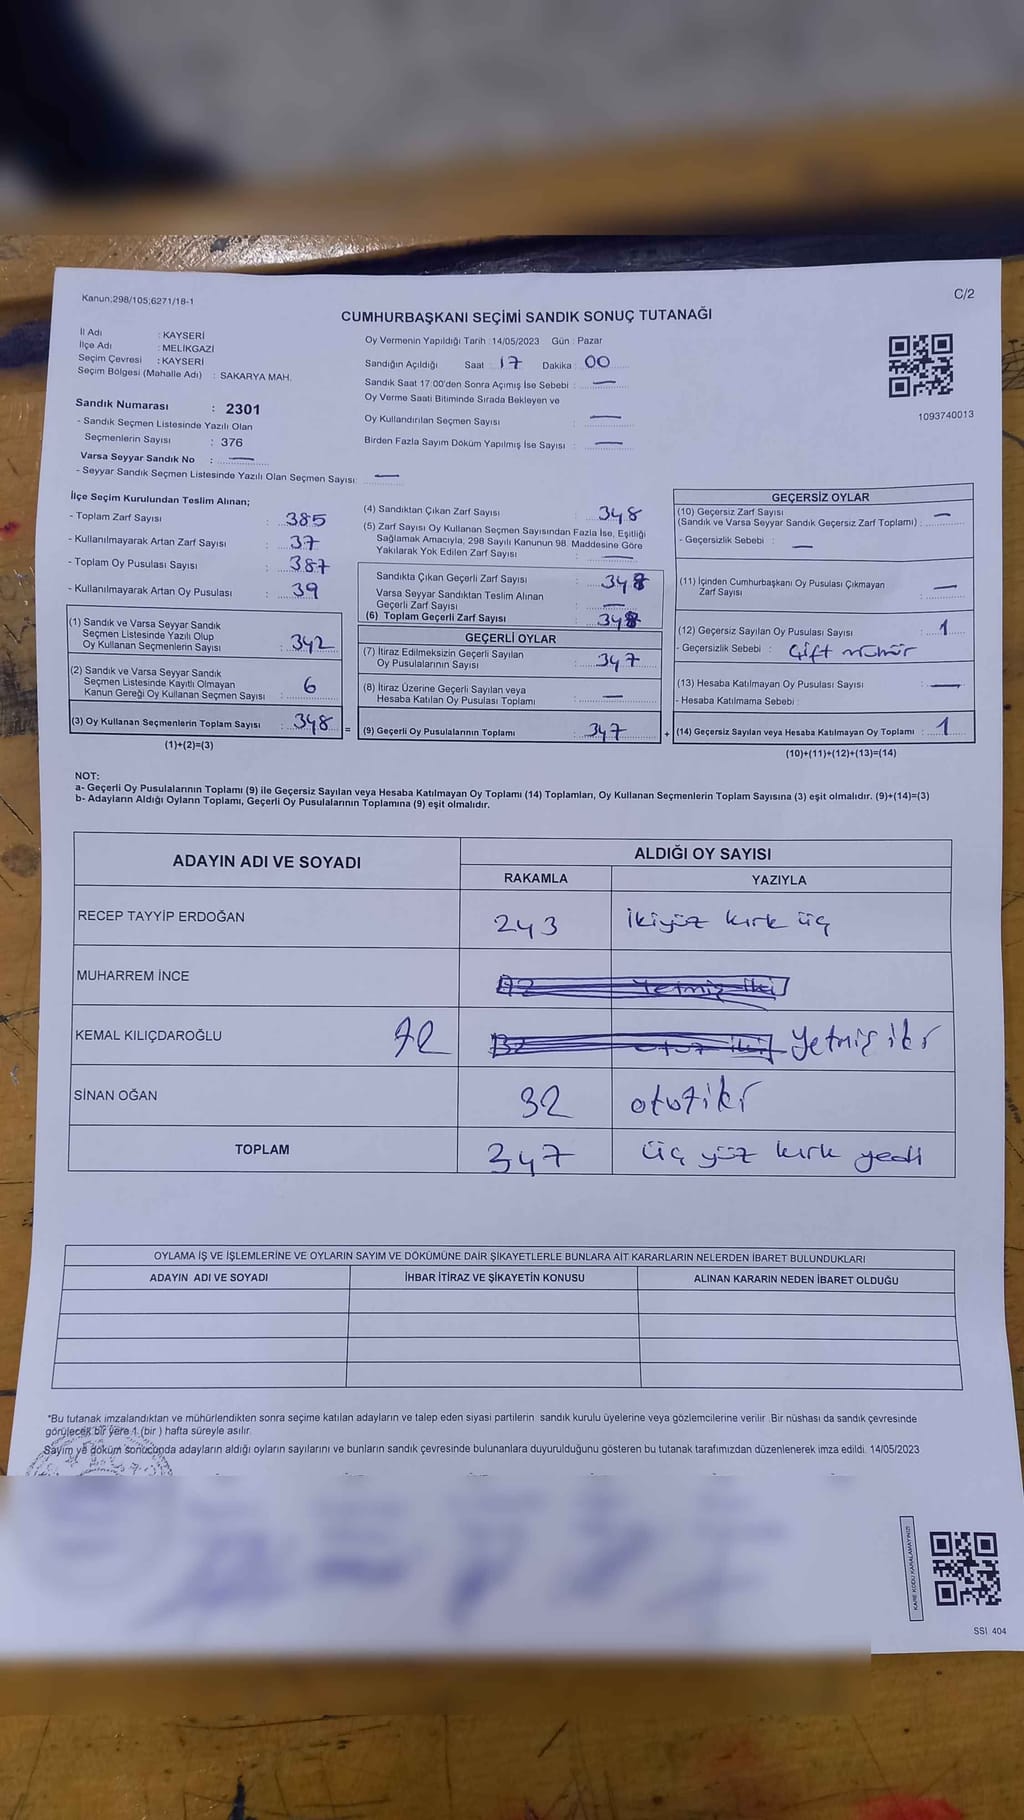 Kanun;298/105;6271/18-1
C/2
CUMHURBAŞKANI SEÇİMİ SANDIK SONUÇ TUTANAĞI
İl Adı : KAYSERİ
İlçe Adı : MELİKGAZİ
Seçim Çevresi : KAYSERİ
Seçim Bölgesi (Mahalle Adı) : SAKARYA MAH.
Sandık Numarası : 2301
- Sandık Seçmen Listesinde Yazılı Olan
Seçmenlerin Sayısı : 376
Varsa Seyyar Sandık No : —
- Seyyar Sandık Seçmen Listesinde Yazılı Olan Seçmen Sayısı: —
Oy Vermenin Yapıldığı Tarih : 14/05/2023 Gün : Pazar
Sandığın Açıldığı Saat : 17 Dakika : 00
Sandık Saat 17:00'den Sonra Açımış İse Sebebi : —
Oy Verme Saati Bitiminde Sırada Bekleyen ve
Oy Kullandırılan Seçmen Sayısı : —
Birden Fazla Sayım Döküm Yapılmış İse Sayısı : —
1093740013
İlçe Seçim Kurulundan Teslim Alınan;
- Toplam Zarf Sayısı : 385
- Kullanılmayarak Artan Zarf Sayısı : 37
- Toplam Oy Pusulası Sayısı : 387
- Kullanılmayarak Artan Oy Pusulası : 39
(1) Sandık ve Varsa Seyyar Sandık
Seçmen Listesinde Yazılı Olup
Oy Kullanan Seçmenlerin Sayısı : 342
(2) Sandık ve Varsa Seyyar Sandık
Seçmen Listesinde Kayıtlı Olmayan
Kanun Gereği Oy Kullanan Seçmen Sayısı : 6
(3) Oy Kullanan Seçmenlerin Toplam Sayısı : 348 =
(1)+(2)=(3)
(4) Sandıktan Çıkan Zarf Sayısı : 348
(5) Zarf Sayısı Oy Kullanan Seçmen Sayısından Fazla İse, Eşitliği
Sağlamak Amacıyla, 298 Sayılı Kanunun 98. Maddesine Göre
Yakılarak Yok Edilen Zarf Sayısı : —
Sandıkta Çıkan Geçerli Zarf Sayısı : 348
Varsa Seyyar Sandıktan Teslim Alınan
Geçerli Zarf Sayısı : —
(6) Toplam Geçerli Zarf Sayısı : 348
GEÇERLİ OYLAR
(7) İtiraz Edilmeksizin Geçerli Sayılan
Oy Pusulalarının Sayısı : 347
(8) İtiraz Üzerine Geçerli Sayılan veya
Hesaba Katılan Oy Pusulası Toplamı : —
(9) Geçerli Oy Pusulalarının Toplamı : 347 +
GEÇERSİZ OYLAR
(10) Geçersiz Zarf Sayısı
(Sandık ve Varsa Seyyar Sandık Geçersiz Zarf Toplamı) : —
- Geçersizlik Sebebi : —
(11) İçinden Cumhurbaşkanı Oy Pusulası Çıkmayan
Zarf Sayısı : —
(12) Geçersiz Sayılan Oy Pusulası Sayısı : 1
- Geçersizlik Sebebi : Çift mühür
(13) Hesaba Katılmayan Oy Pusulası Sayısı : —
- Hesaba Katılmama Sebebi :
(14) Geçersiz Sayılan veya Hesaba Katılmayan Oy Toplamı : 1
(10)+(11)+(12)+(13)=(14)
NOT:
a- Geçerli Oy Pusulalarının Toplamı (9) ile Geçersiz Sayılan veya Hesaba Katılmayan Oy Toplamı (14) Toplamları, Oy Kullanan Seçmenlerin Toplam Sayısına (3) eşit olmalıdır. (9)+(14)=(3)
b- Adayların Aldığı Oyların Toplamı, Geçerli Oy Pusulalarının Toplamına (9) eşit olmalıdır.
ADAYIN ADI VE SOYADI ALDIĞI OY SAYISI
RAKAMLA YAZIYLA
RECEP TAYYİP ERDOĞAN 243 ikiyüz kırk üç
MUHARREM İNCE
KEMAL KILIÇDAROĞLU 72 Yetmiş iki
SİNAN OĞAN 32 otuziki
TOPLAM 347 üç yüz kırk yedi
OYLAMA İŞ VE İŞLEMLERİNE VE OYLARIN SAYIM VE DÖKÜMÜNE DAİR ŞİKAYETLERLE BUNLARA AİT KARARLARIN NELERDEN İBARET BULUNDUKLARI
ADAYIN ADI VE SOYADI İHBAR İTİRAZ VE ŞİKAYETİN KONUSU ALINAN KARARIN NEDEN İBARET OLDUĞU
*Bu tutanak imzalandıktan ve mühürlendikten sonra seçime katılan adayların ve talep eden siyasi partilerin sandık kurulu üyelerine veya gözlemcilerine verilir. Bir nüshası da sandık çevresinde
görülecek bir yere 1 (bir ) hafta süreyle asılır.
Sayım ve döküm sonucunda adayların aldığı oyların sayılarını ve bunların sandık çevresinde bulunanlara duyurulduğunu gösteren bu tutanak tarafımızdan düzenlenerek imza edildi. 14/05/2023
KARE KODU KARALAMAYINIZ!
SSİ 404